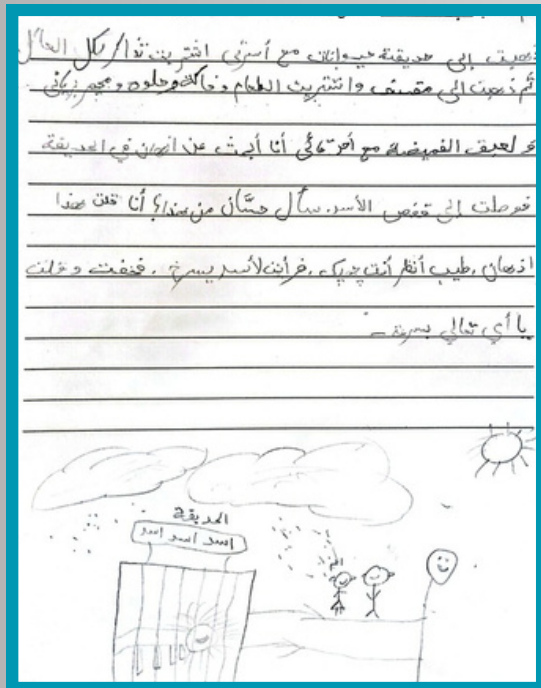 ذهبت إلى حديقة حيوانات مع أسرتي اشتريت تذا/ر لكل العائل
ثم ذهبت إلى مقصف واشتريت الطعام وفاكة وحلوه و
و لعبت الغميضة مع أخر أنا أبحث عن اذهان في الحديقة
فوصلت إلى قفص الأسد. سأل حسَّان من هذا؟ أنا قلت هذا
اذهان. طيب أنظر أنت. فرأيت لأسد يسرخ. فخفت و قلت
يا أي تعالي بسرعة
الحديقة
اسد اسد اسد